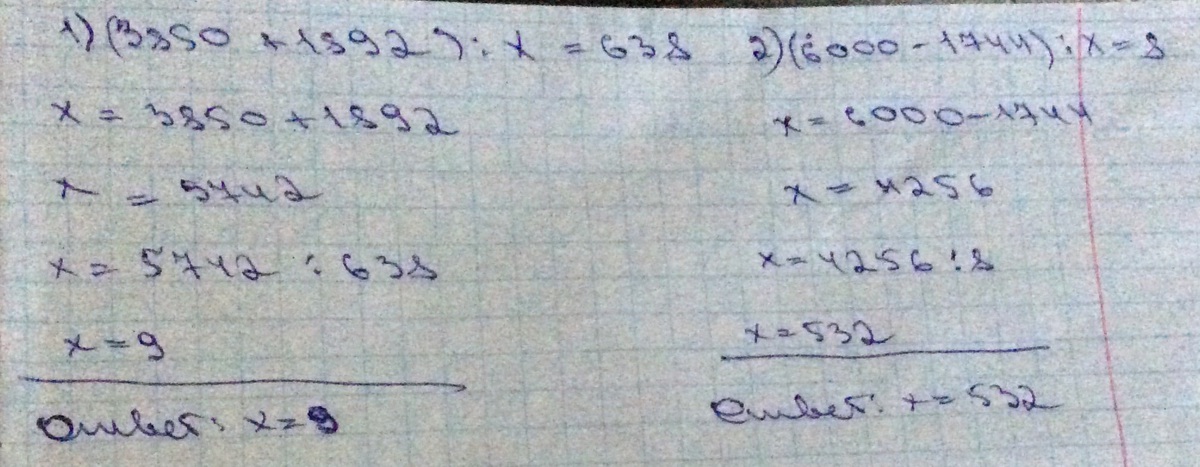 1) (3850 + 1892) : x = 638
x = 3850 + 1892
x = 5742
x = 5742 : 638
x = 9
Ответ: x = 9
2) (6000 - 1744) : x = 8
x = 6000 - 1744
x = 4256
x = 4256 : 8
x = 532
Ответ: x = 532